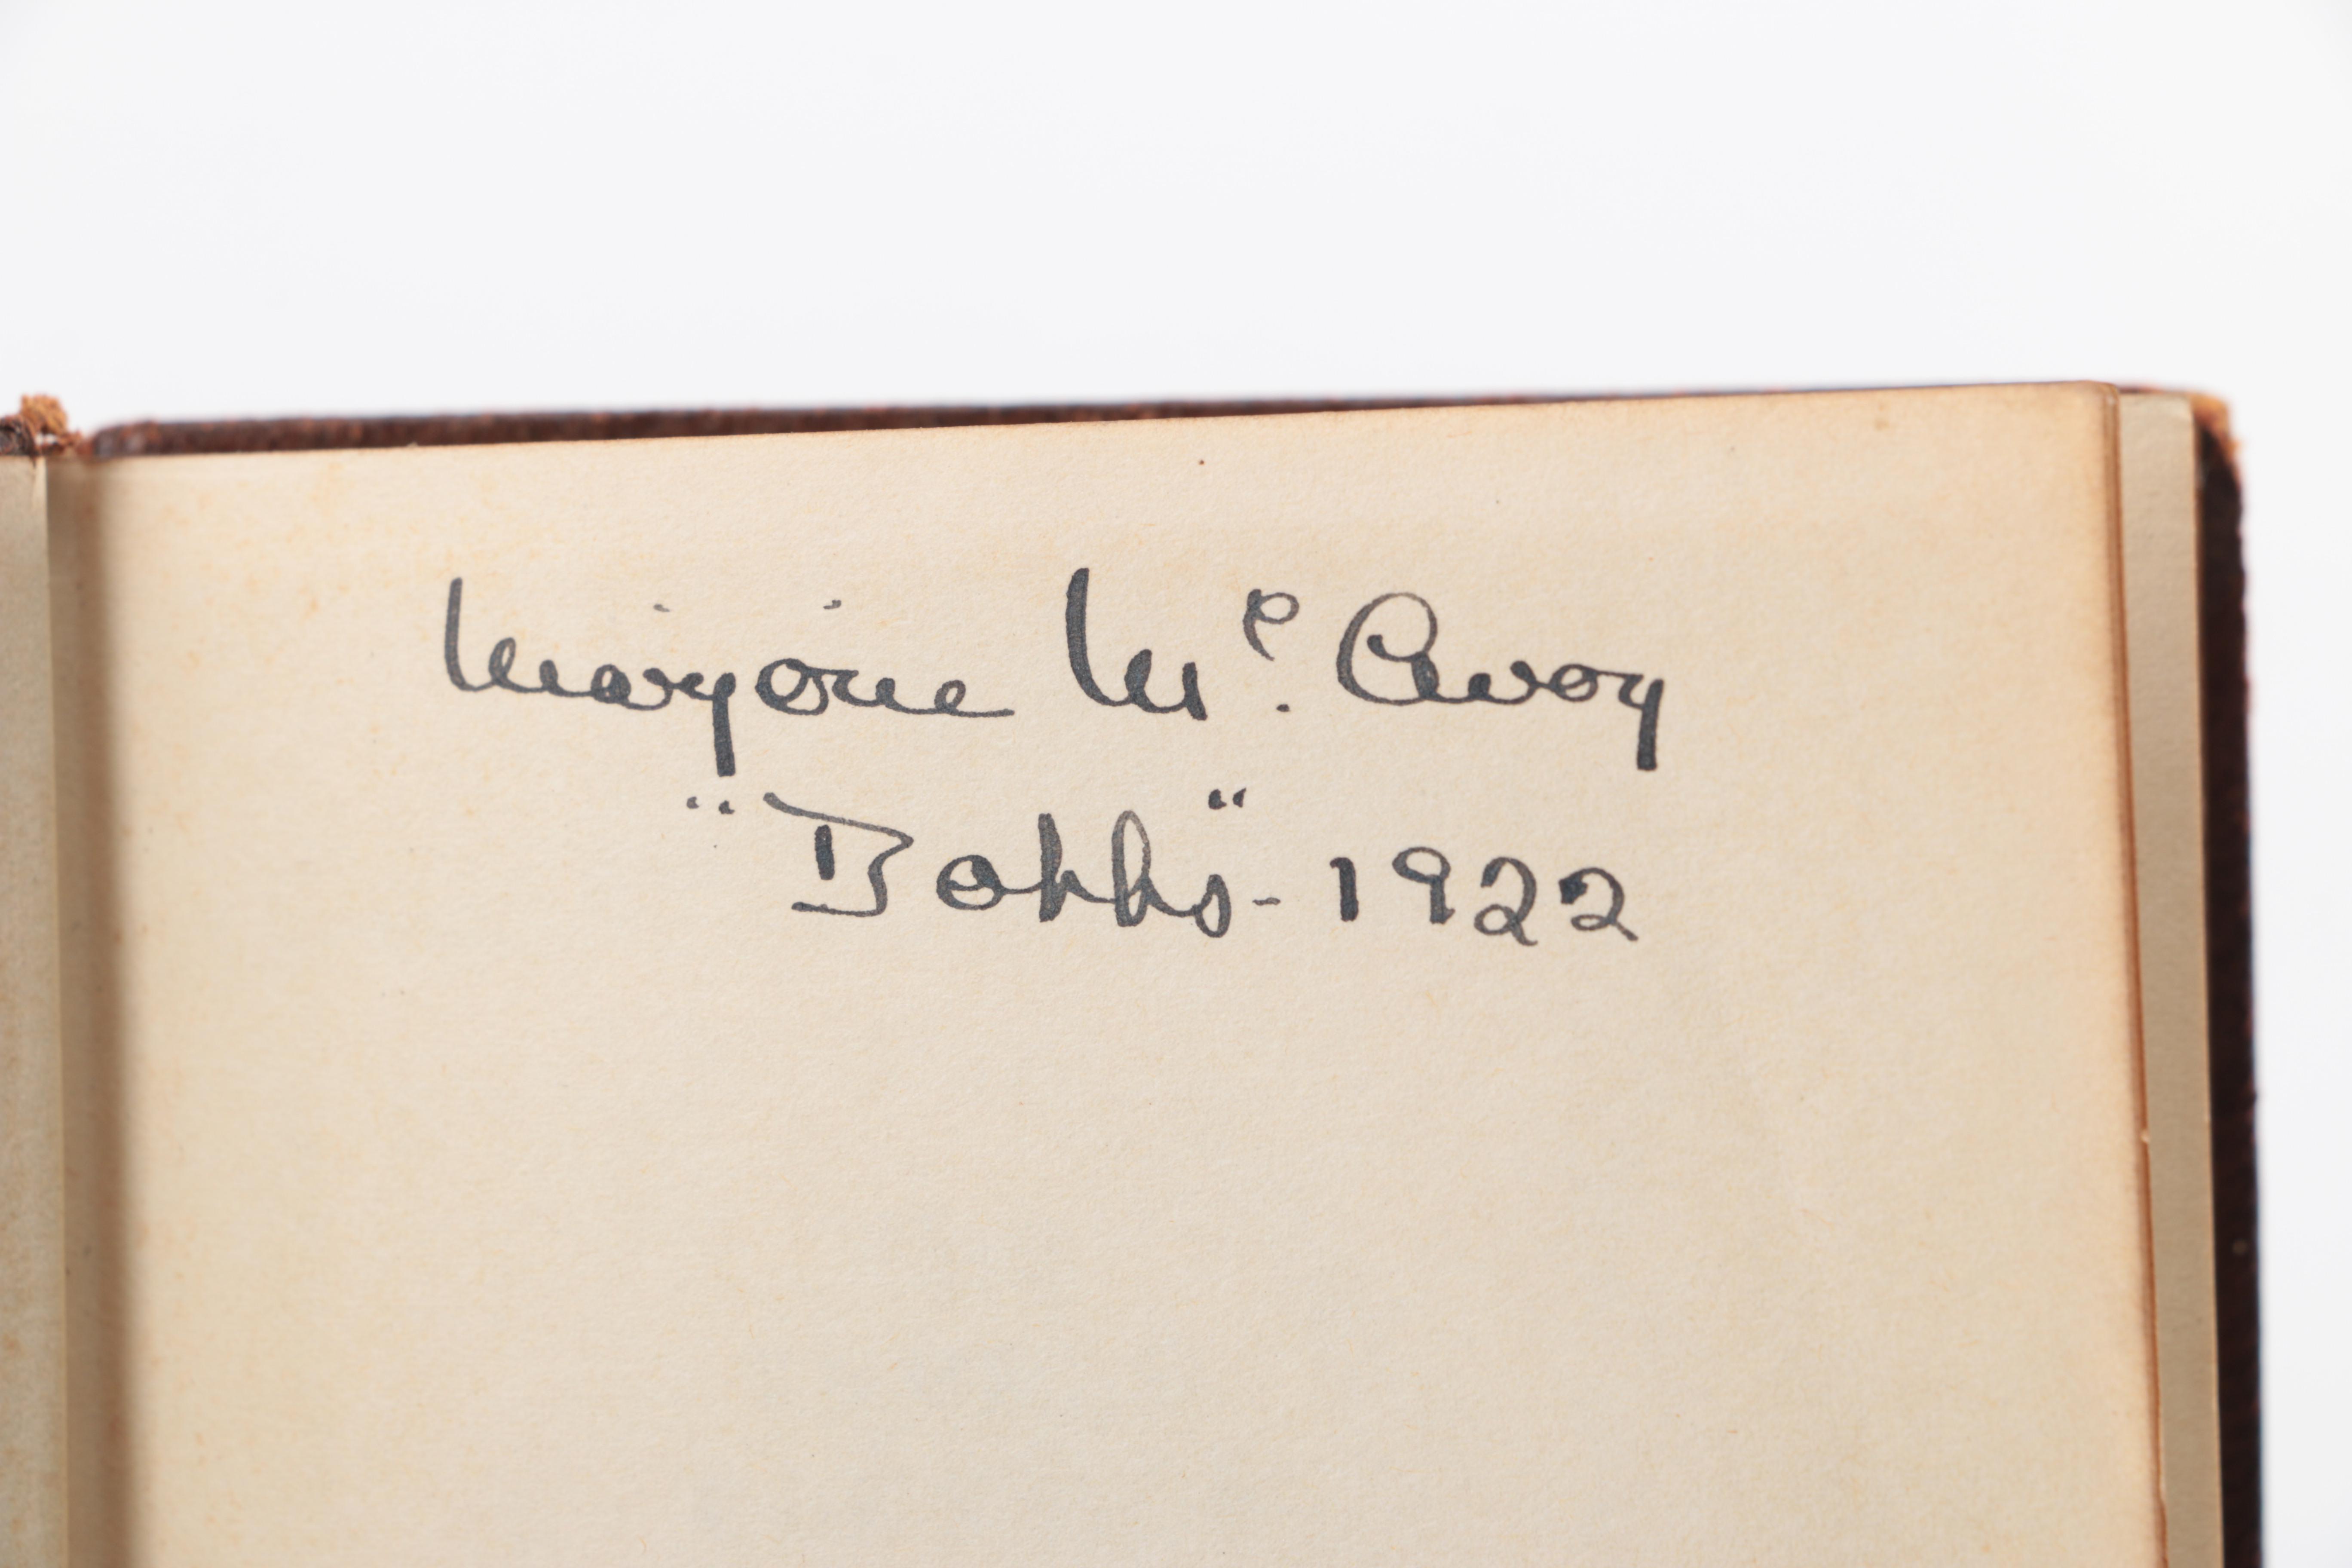 Marjorie Mc. Avoy
"Dobbs"- 1922